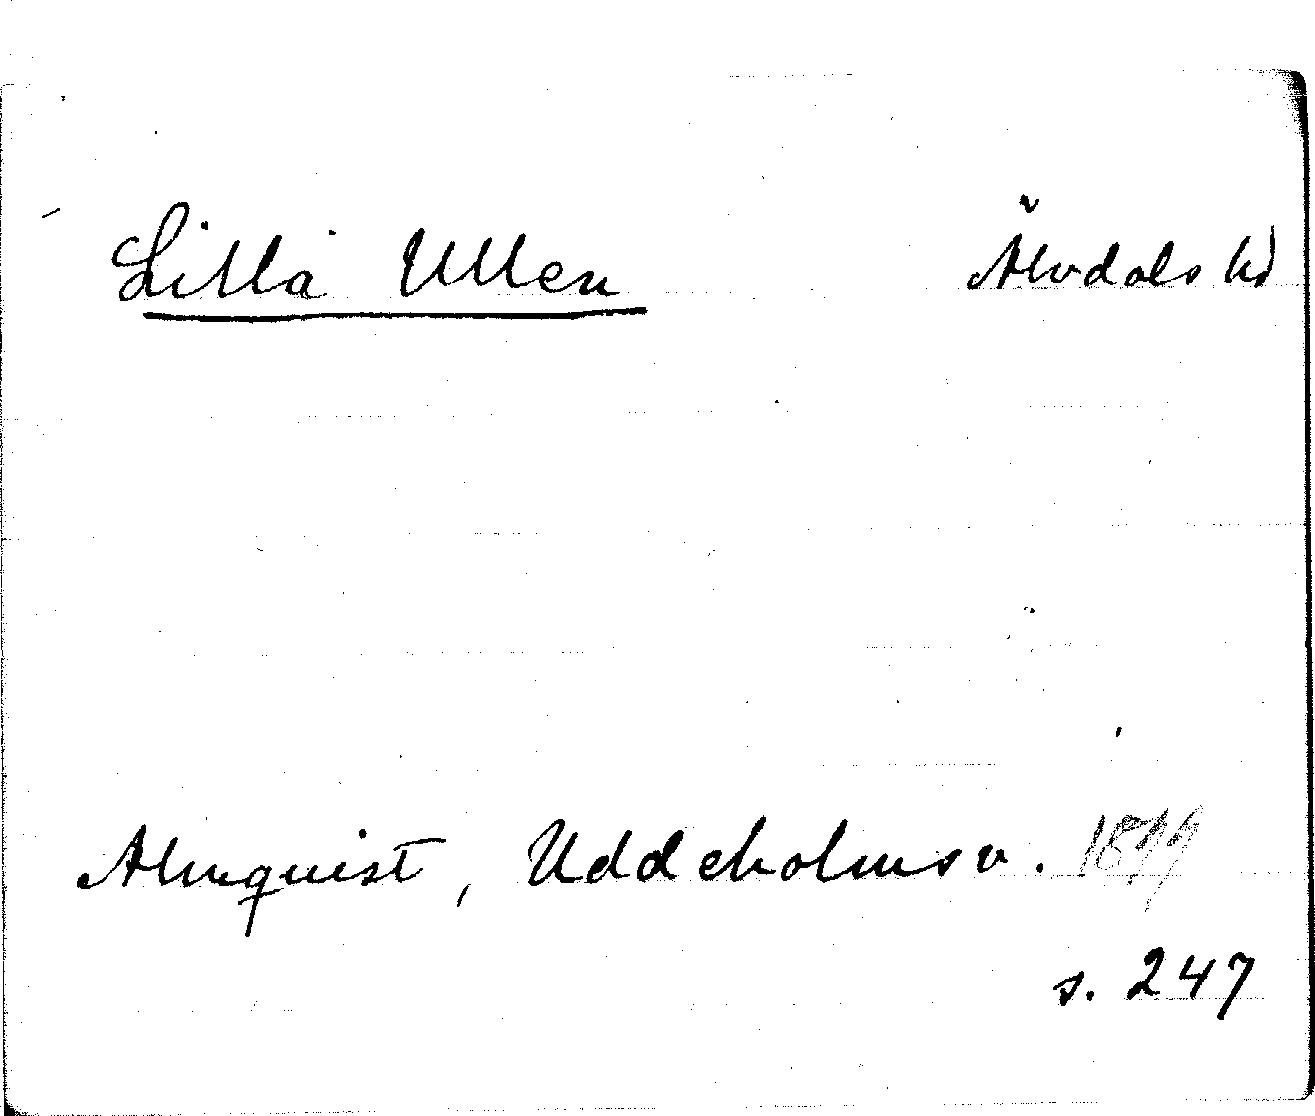 Lilla Ullen Älvdals hd
Almquist, Uddeholmsv. 1899
s. 247